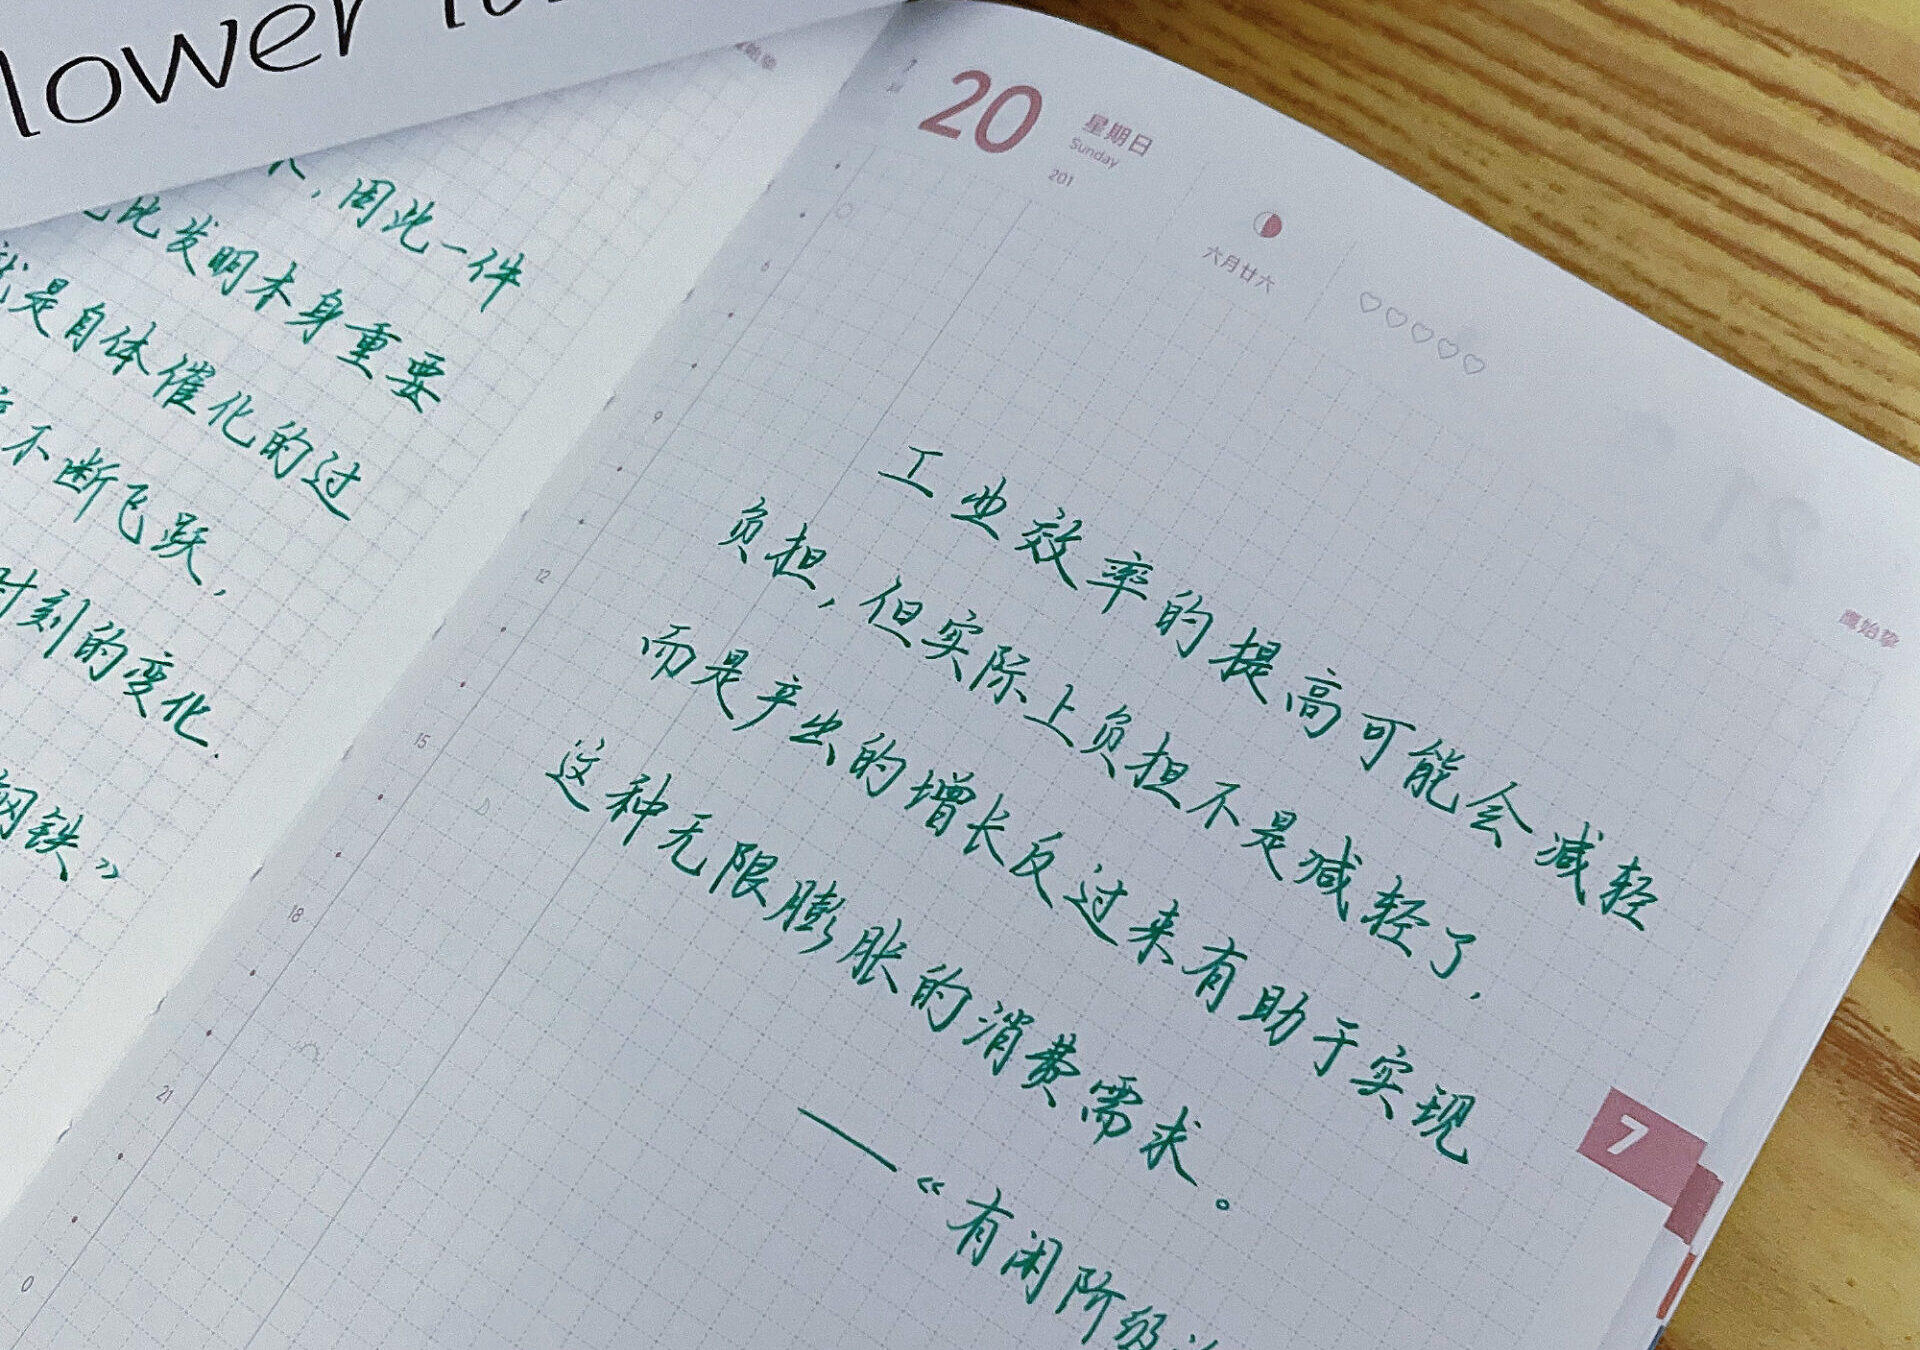 lower
因此一件
比发明本身重要
是自体催化的过
不断飞跃，
时刻的变化.
钢铁》
20
星期日
Sunday
201
六月廿六
鷹始摯
6
9
12
15
18
21
0
工业效率的提高可能会减轻
负担，但实际上负担不是减轻了，
而是产出的增长反过来有助于实现
这种无限膨胀的消费需求。
——《有闲阶级
7